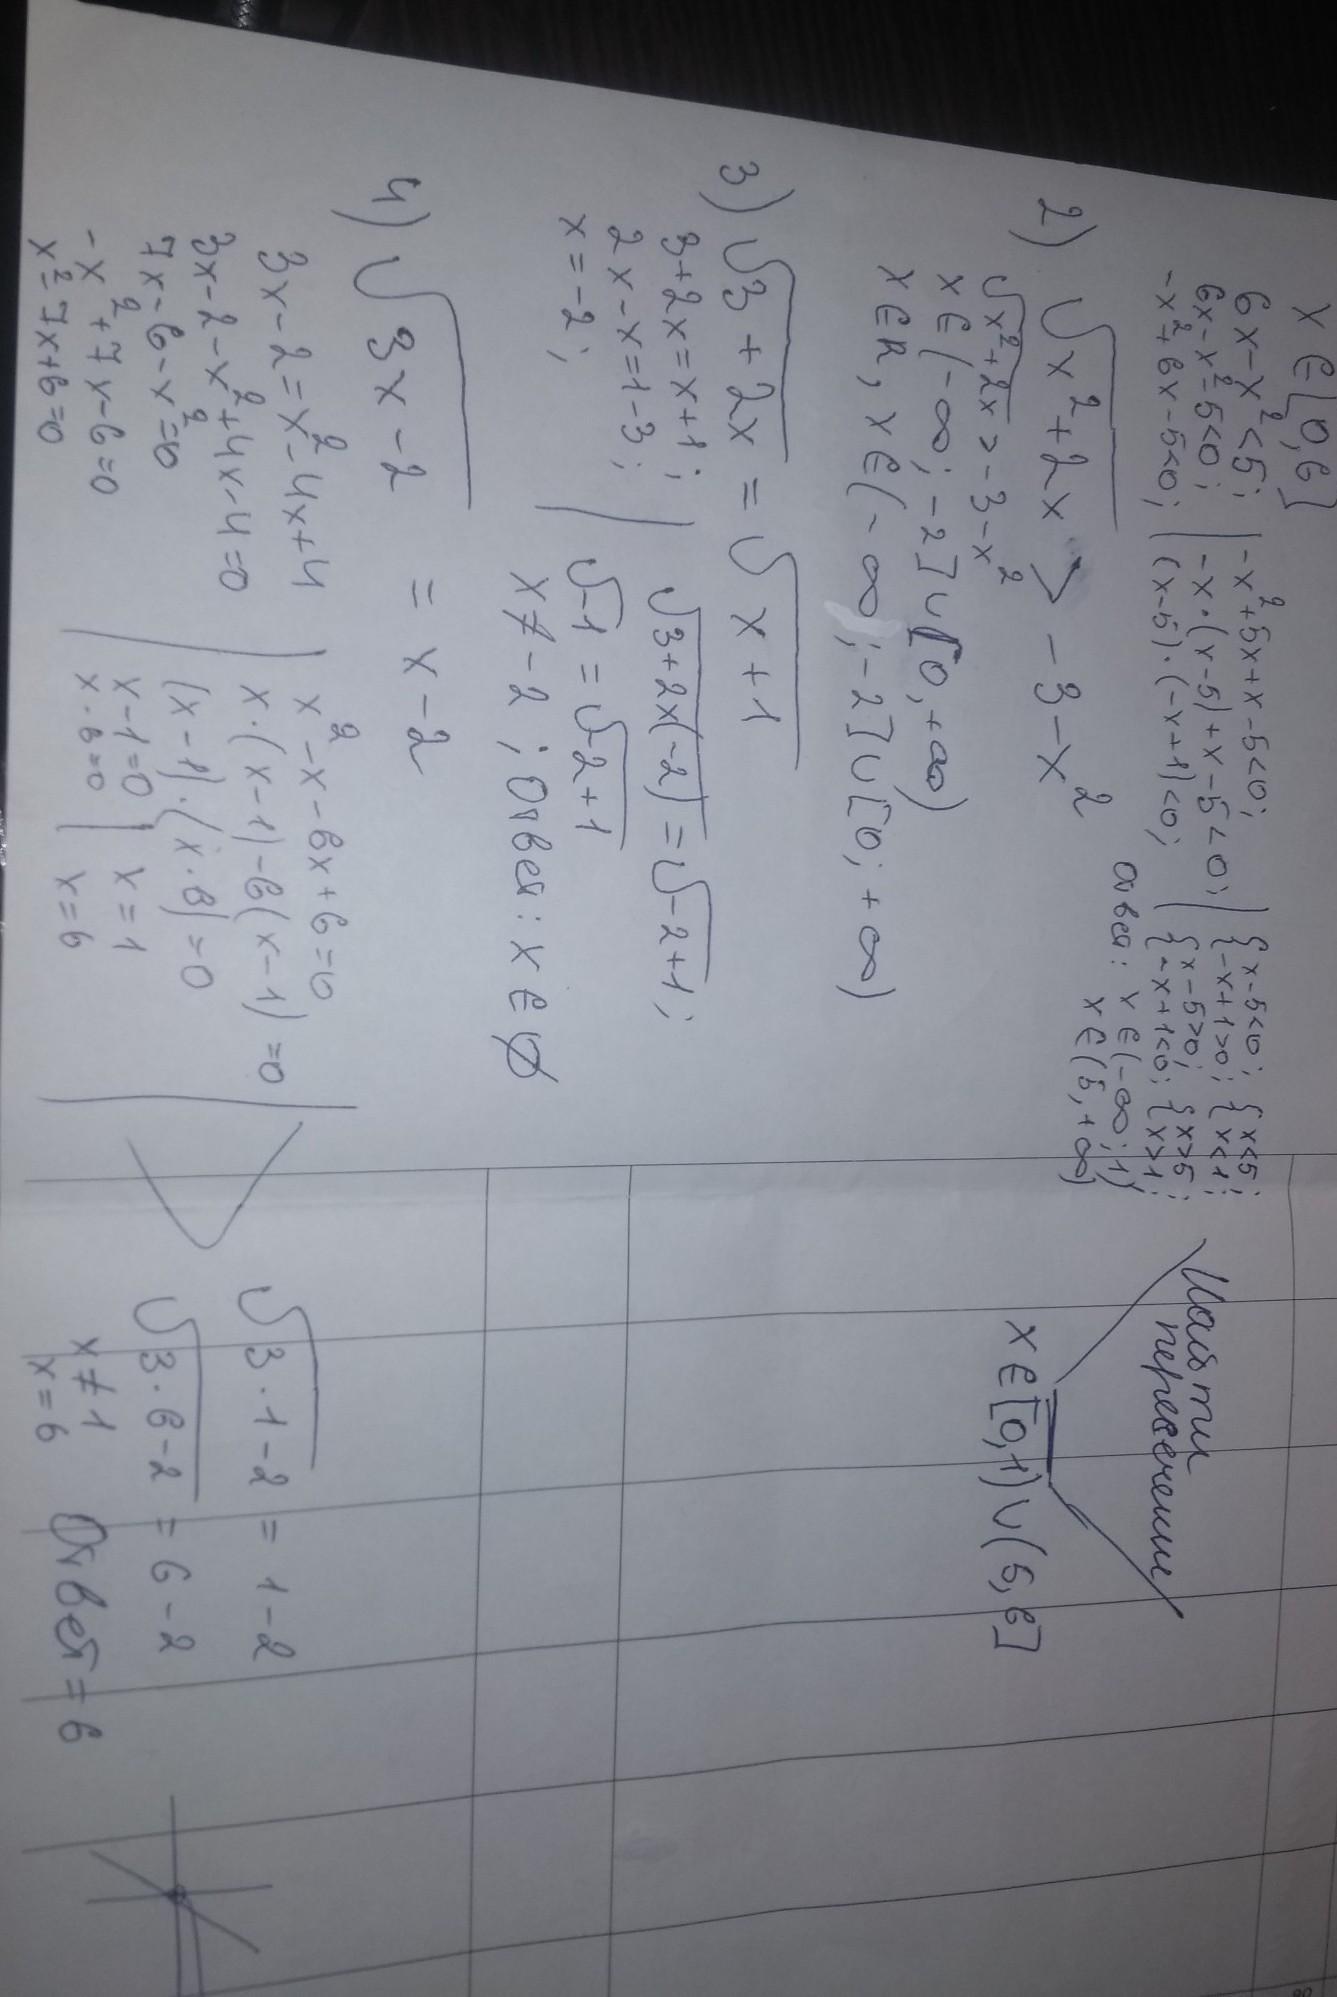 x ∈ [0,6]
6x-x²<5; | -x²+5x+x-5<0; | { x-5<0; { x<5;
6x-x²-5<0; | -x·(x-5)+x-5<0; | { -x+1>0; { x<1;
-x²+6x-5<0; | (x-5)·(-x+1)<0; | { x-5>0; { x>5;
{ -x+1<0; { x>1;
Ответ: x ∈ (-∞; 1)
x ∈ (5, +∞)
Найти
пересечении
x ∈ [0,1) ∪ (5,6]
2) √x²+2x > -3-x²
√x²+2x > -3-x²
x ∈ (-∞; -2] ∪ [0, +∞)
x ∈ R, x ∈ (-∞; -2] ∪ [0; +∞)
3) √3+2x = √x+1
3+2x=x+1; | √3+2×(-2) = √-2+1;
2x-x=1-3; | √-1 = √-2+1
x=-2; | x≠-2; Ответ: x ∈ ∅
4) √3x-2 = x-2
3x-2=x²-4x+4
3x-2-x²+4x-4=0
7x-6-x²=0
-x²+7x-6=0
x²-7x+6=0
x²-x-6x+6=0
x·(x-1)-6(x-1)=0
(x-1)·(x·6)=0
x-1=0 | x=1
x·6=0 | x=6
√3·1-2 = 1-2
√3·6-2 = 6-2
x≠1
x=6 Ответ=6